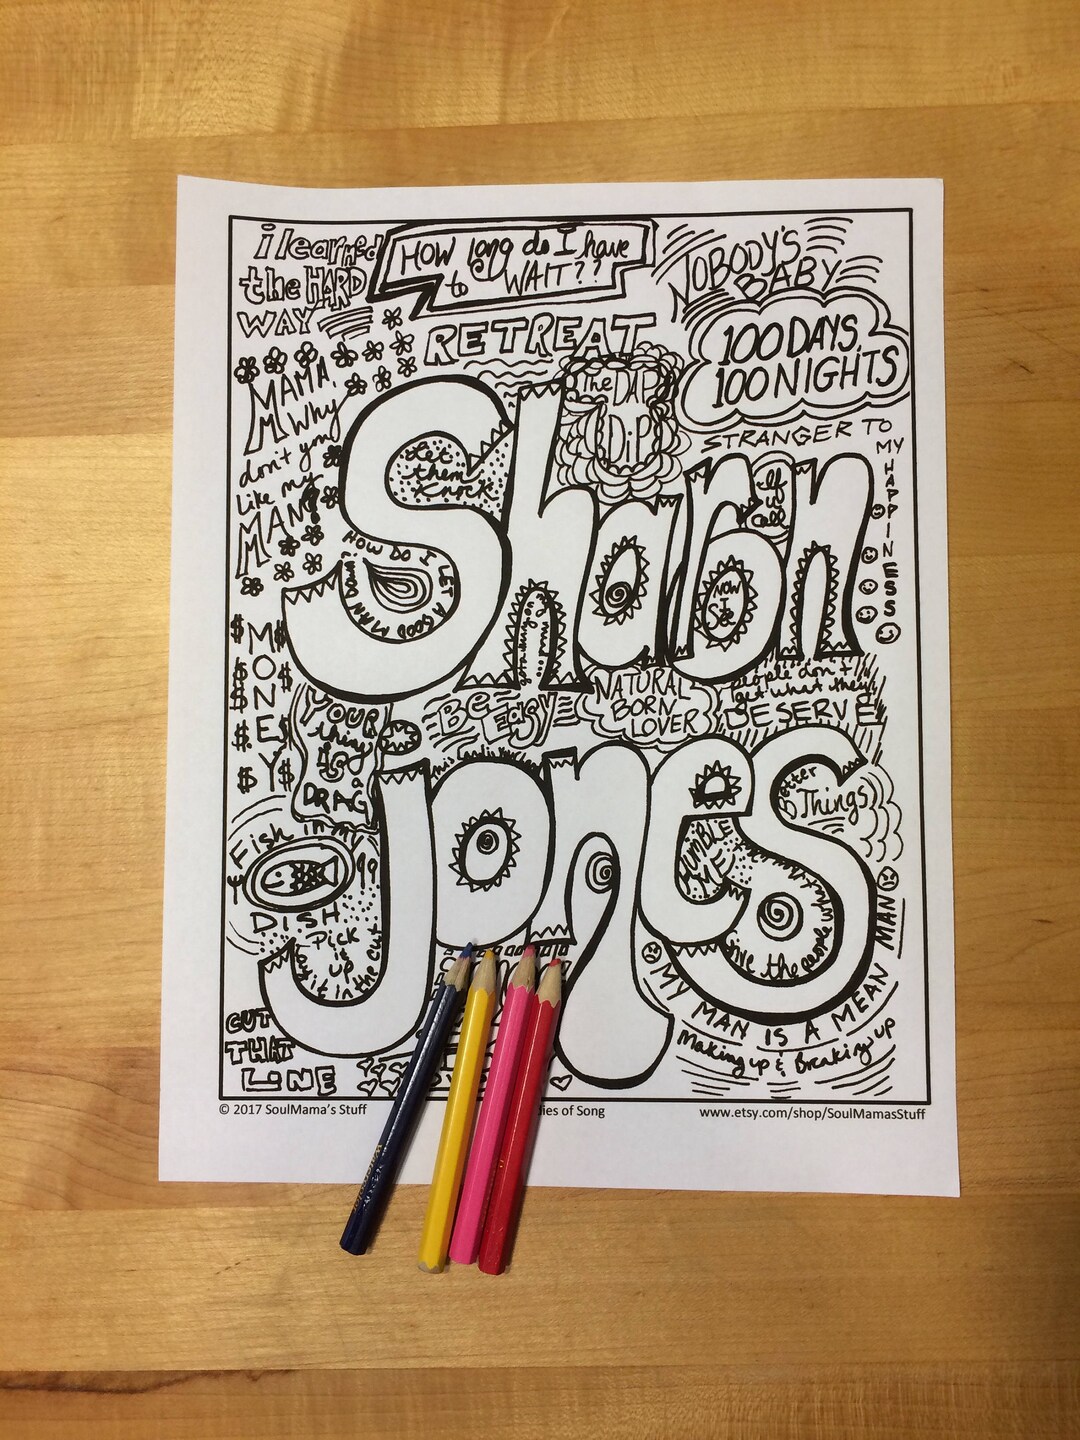 i learned
the HARD
WAY
HOW long do I have
to WAIT??
NOBODY'S
BABY
RETREAT
100 DAYS,
100 NIGHTS
The DAP
DiP
MAMA,
Why
don't you
like my
MAN?
Let
them
Knock
STRANGER TO
MY
HAPPINESS
If
u
call
Sharon
HOW DO I LET A GOOD MAN DOWN?
NOW
I
See
$MONEY$
YOUR
thing
iS
a
DRAG
Be
EASY
NATURAL
BORN
LOVER
people don't
get what they
DESERVE
Jones
Better
Things
HUMBLE
ME
Fish in my
DISH
Pick
it
up
lay it in the cut
give the people what they want
MY MAN IS A MEAN MAN
Making up & Breaking up
CUT
THAT
LINE
© 2017 SoulMama's Stuff
dies of Song
www.etsy.com/shop/SoulMamasStuff